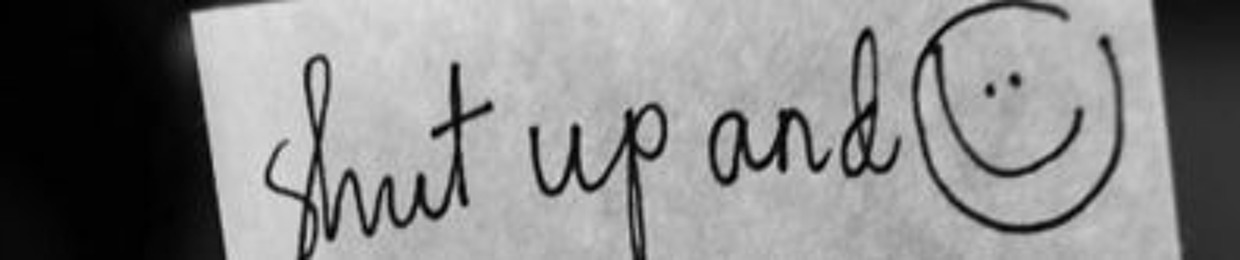 Shut up and